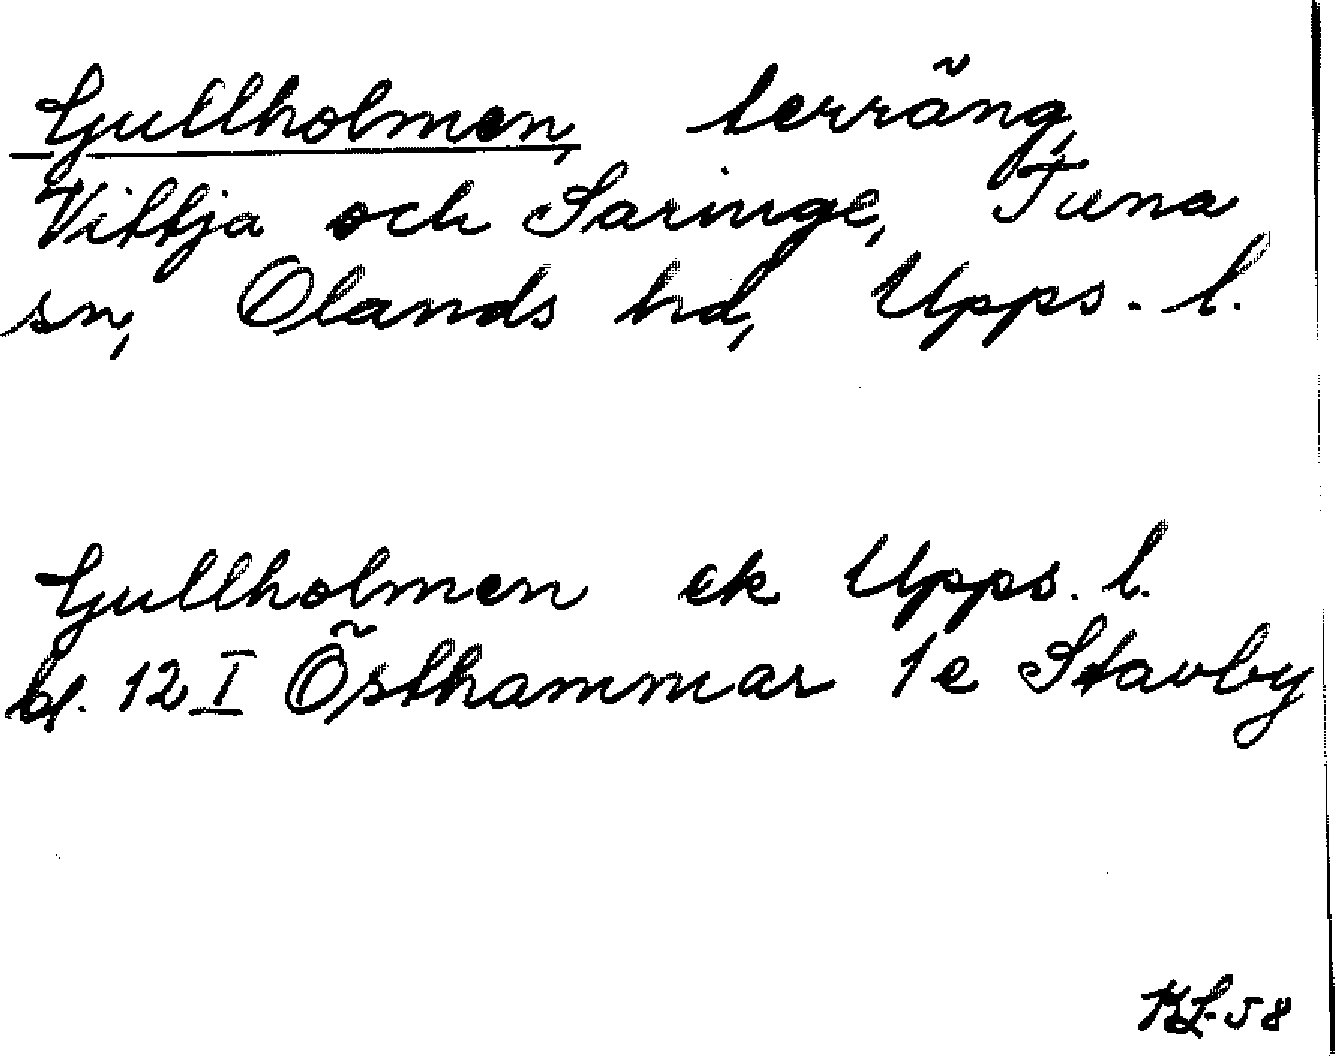 Gullholmen, terräng,
Vittja och Saringe, Tuna
sn, Olands hd, Upps. l.
Gullholmen ek Upps. l.
bl. 12 I Östhammar 1e Stavby
KL-58